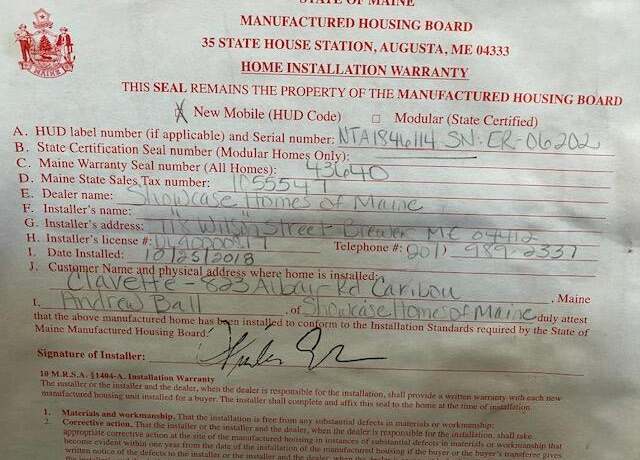 STATE OF MAINE
MANUFACTURED HOUSING BOARD
35 STATE HOUSE STATION, AUGUSTA, ME 04333
HOME INSTALLATION WARRANTY
THIS SEAL REMAINS THE PROPERTY OF THE MANUFACTURED HOUSING BOARD
MAINE
X New Mobile (HUD Code) □ Modular (State Certified)
A. HUD label number (if applicable) and Serial number: NTA1846114 SN-ER-06202
B. State Certification Seal number (Modular Homes Only):
C. Maine Warranty Seal number (All Homes): 43640
D. Maine State Sales Tax number: 1055547
E. Dealer name: Showcase Homes of Maine
F. Installer's name:
G. Installer's address: 718 Wilson Street Brewer ME 04412
H. Installer's license #: Telephone #: 207) 989-2337
I. Date Installed: 10/25/2018
J. Customer Name and physical address where home is installed:
Clavette - 823 Albair Rd Caribou, Maine
I, Andrew Ball, of Showcase Homes of Maine duly attest
that the above manufactured home has been installed to conform to the Installation Standards required by the State of
Maine Manufactured Housing Board.
Signature of Installer:
10 M.R.S.A. §1404-A. Installation Warranty
The installer or the installer and the dealer, when the dealer is responsible for the installation, shall provide a written warranty with each new
manufactured housing unit installed for a buyer. The installer shall complete and affix this seal to the home at the time of installation.
1. Materials and workmanship. That the installation is free from any substantial defects in materials or workmanship;
2. Corrective action. That the installer or the installer and the dealer, when the dealer is responsible for the installation, shall take
appropriate corrective action at the site of the manufactured housing in instances of substantial defects in materials or workmanship that
become evident within one year from the date of the installation of the manufactured housing if the buyer or the buyer's transferee gives
written notice of the defects to the installer or the installer and the dealer, when the dealer